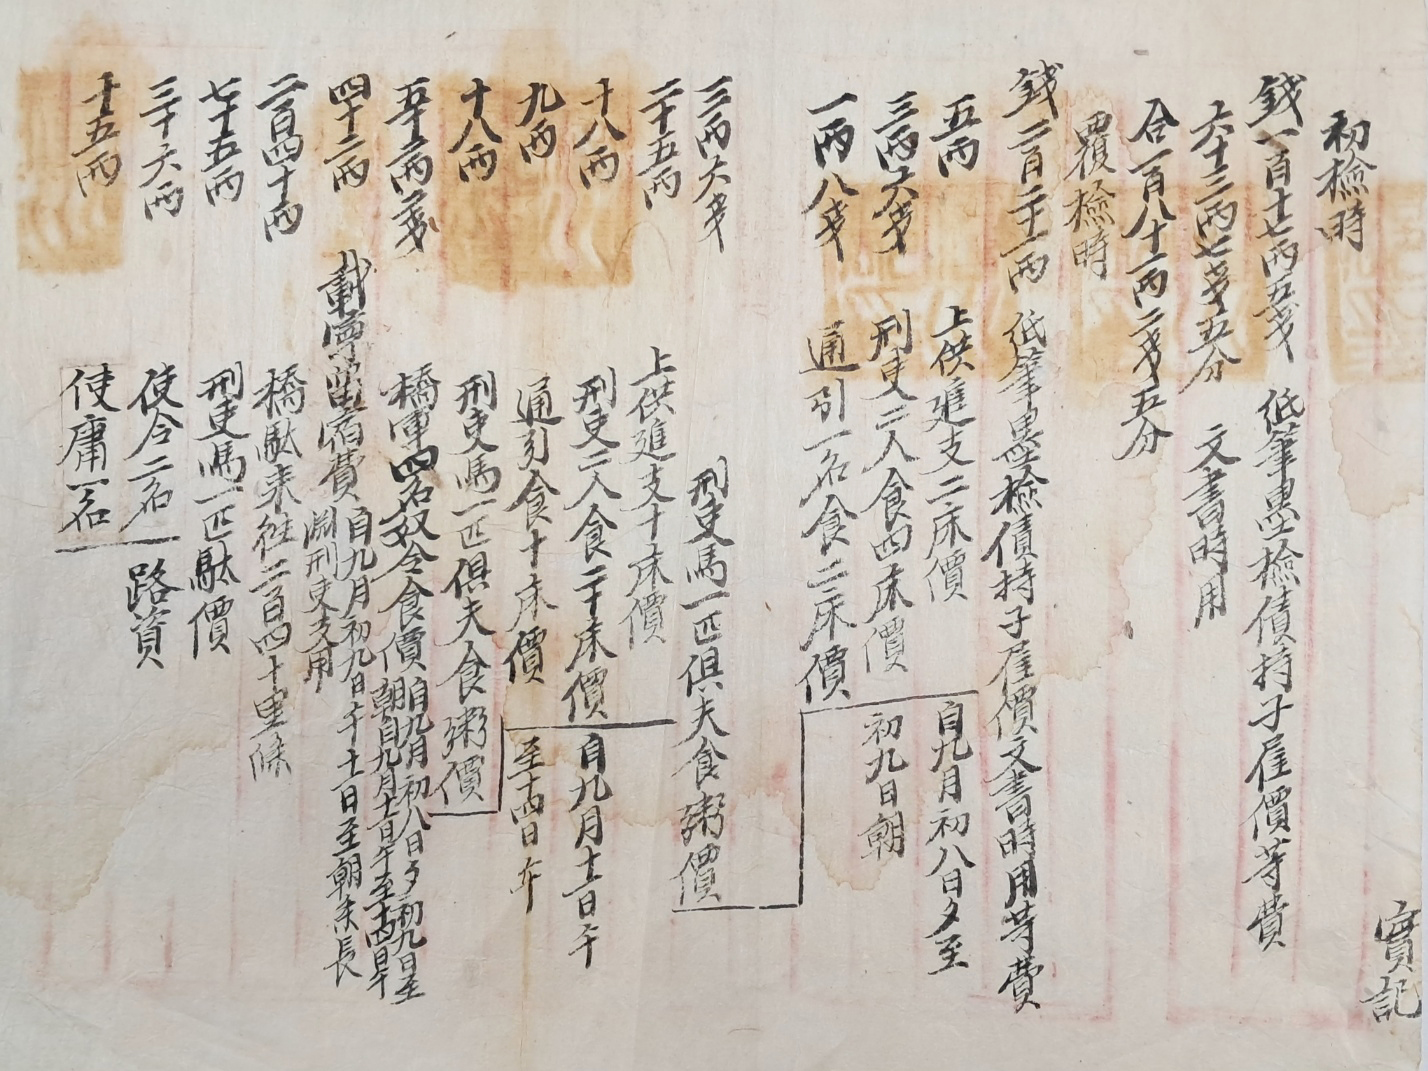 實記
初檢時
錢一百十七兩五戔 低筆墨檢債持子雇價等費
六十三兩七戔五分 文書時用
合一百八十一兩二戔五分
覆檢時
錢二百二十一兩 低筆墨檢債持子雇價文書時用等費
五兩 上供進支二床價 自九月初八日夕至
三兩六戔 刑吏二人食四床價 初九日朝
一兩八戔 通引一名食二床價
三兩六戔 刑吏馬一匹俱夫食粥價
二十五兩 上供進支十床價
十八兩 刑吏二人食二十床價 自九月十一日午
九兩 通引食十床價 至十四日午
十八兩 刑吏馬一匹俱夫食粥價
五十二兩二戔 橋軍四名奴令食價 自九月初八日夕初九日至
朝自九月十一日午至十四日午
四十二兩 載寧留宿費 自九月初九日午十一日至朝系長
淵刑吏支用
二百四十兩 橋馱來往二百四十里條
七十五兩 刑吏馬一匹馱價
三十六兩 使令二名 路資
十五兩 使庸一名